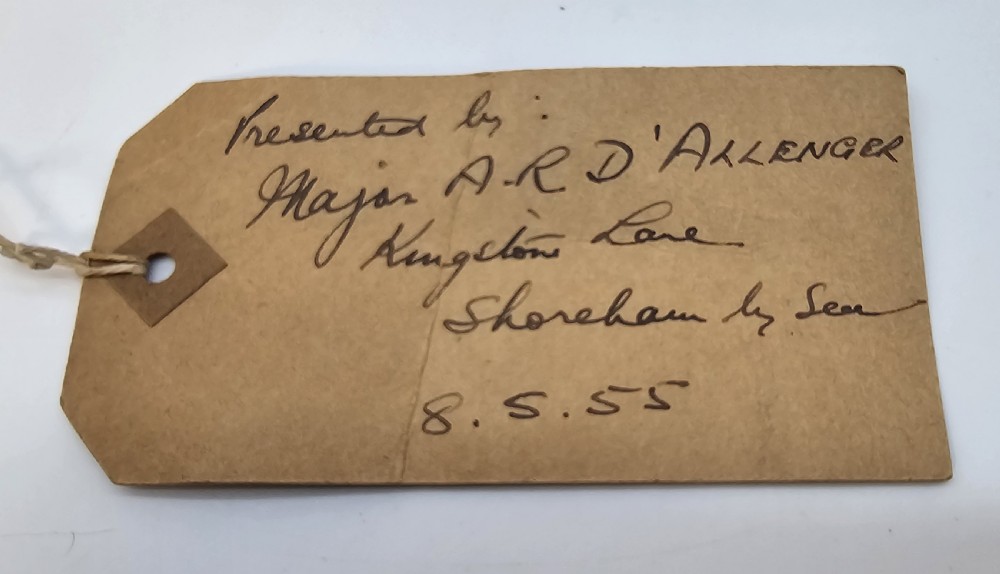 Presented by :
Major A.R D'ALLENGER
Kingston Lane
Shoreham by Sea
8.5.55